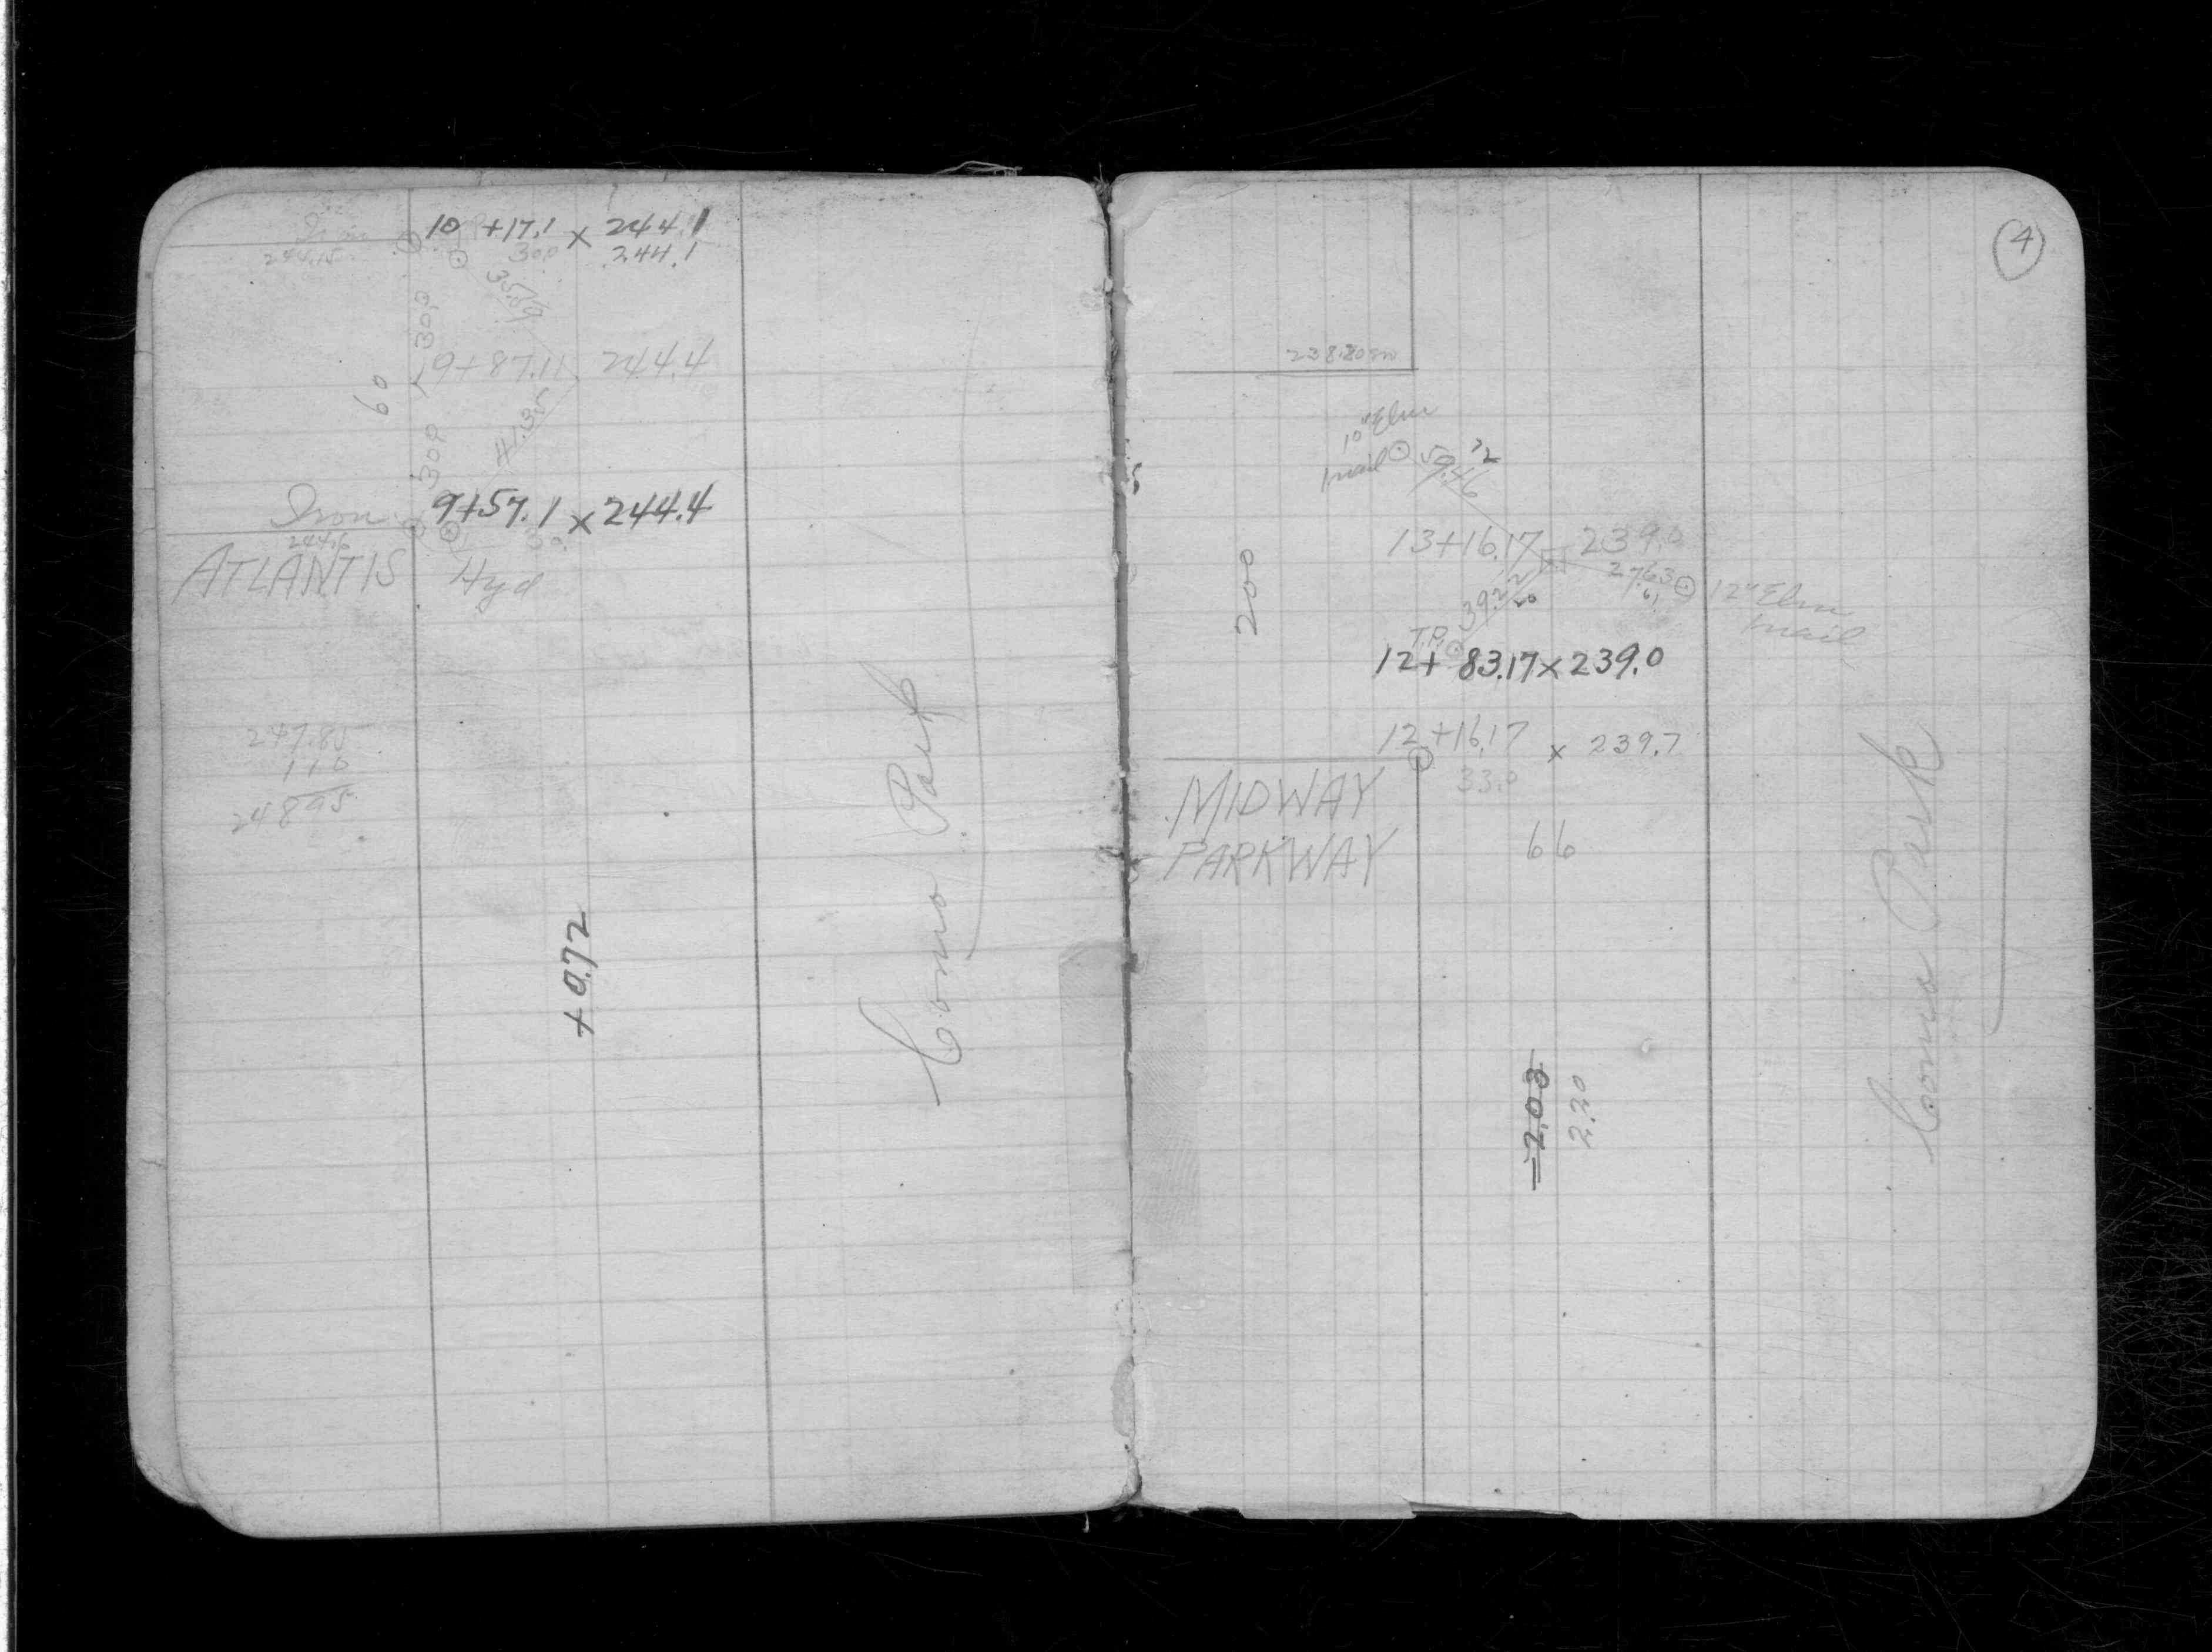 10 +17.1 x 244.1
Iron
244.15
30.0
244.1
35.59
30.0
9+87.11 244.4
60
41.35
30.0
Iron
9+57.1 x 244.4
244.6
30.
ATLANTIS
Hyd
247.85
110
248 95
+0.72
Como Park
4
238.80
10" Elm
nail
59.46
72
13+16.17 239.0
27.63
61
12" Elm
nail
200
39.22
20
T.P.
12+ 83.17 x 239.0
12 +16.17 x 239.7
33.0
MIDWAY
PARKWAY
66
-2.03
2.20
Como Park